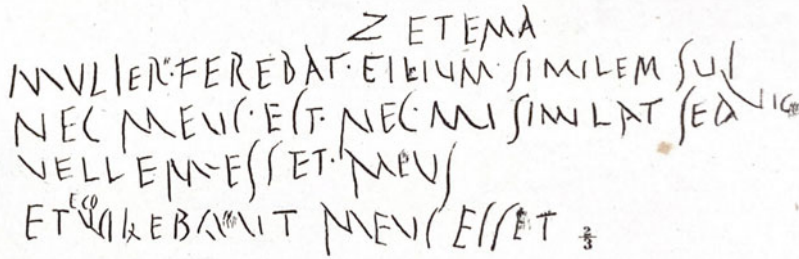 ZETEMA
MVLIER·FEREBAT·FILIVM·SIMILEM SVI
NEC MEVS·EST·NEC·MI SIMILAT SED
VELLEM·ESSET·MEVS
ET EGO VOLEBAM VT MEVS ESSET ⅔